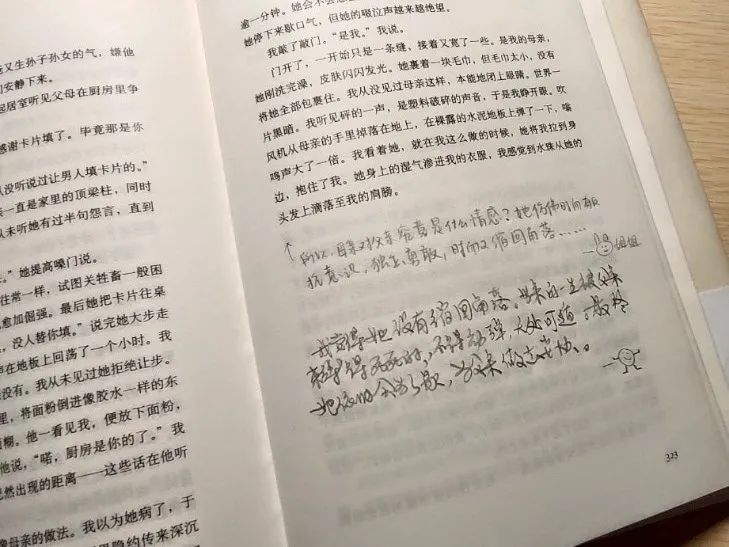 又生孙子孙女的气，嫌他
安静下来。
起居室听见父母在厨房里争
感谢卡片填了。毕竟那是你
从没听说过让男人填卡片的。”
一直是家里的顶梁柱，同时
从未听她有过半句怨言，直到
。”她提高嗓门说。
往常一样，试图关牲畜一般困
愈加倔强。最后她把卡片往桌
，没人替你填。”说完她大步走
声在地板上回荡了一个小时。我
没有。我从未见过她拒绝让步。
里，将面粉倒进像胶水一样的东
糊。他一看见我，便放下面粉，
他说，“喏，厨房是你的了。”我
然出现的距离——这些话在他听
像母亲的做法。我以为她病了，于
隐约传来深沉
逾一分钟。她会不会
她停下来歇口气，但她的啜泣声越来越绝望。
我敲了敲门。“是我。”我说。
门开了，一开始只是一条缝，接着又宽了一些。是我的母亲，
她刚洗完澡，皮肤闪闪发光。她裹着一块毛巾，但毛巾太小，没有
将她全部包裹住。我从没见过母亲这样，本能地闭上眼睛。世界一
片黑暗。我听见砰的一声，是塑料破碎的声音，于是我睁开眼。吹
风机从母亲的手里掉落在地上，在裸露的水泥地板上弹了一下，嗡
鸣声大了一倍。我看着她，就在我这么做的时候，她将我拉到身
边，抱住了我。她身上的湿气渗进我的衣服，我感觉到水珠从她的
头发上滴落至我的肩膀。
↑ 所以，母亲对父亲究竟是什么情感？她仿佛时而有
抗意识，独立、勇敢，时而又缩回角落……
—姐姐
我觉得她没有缩回角落。母亲的一生被父亲
得死死的，不得动弹，无处可逃。最终
她依旧会，为父亲做
223